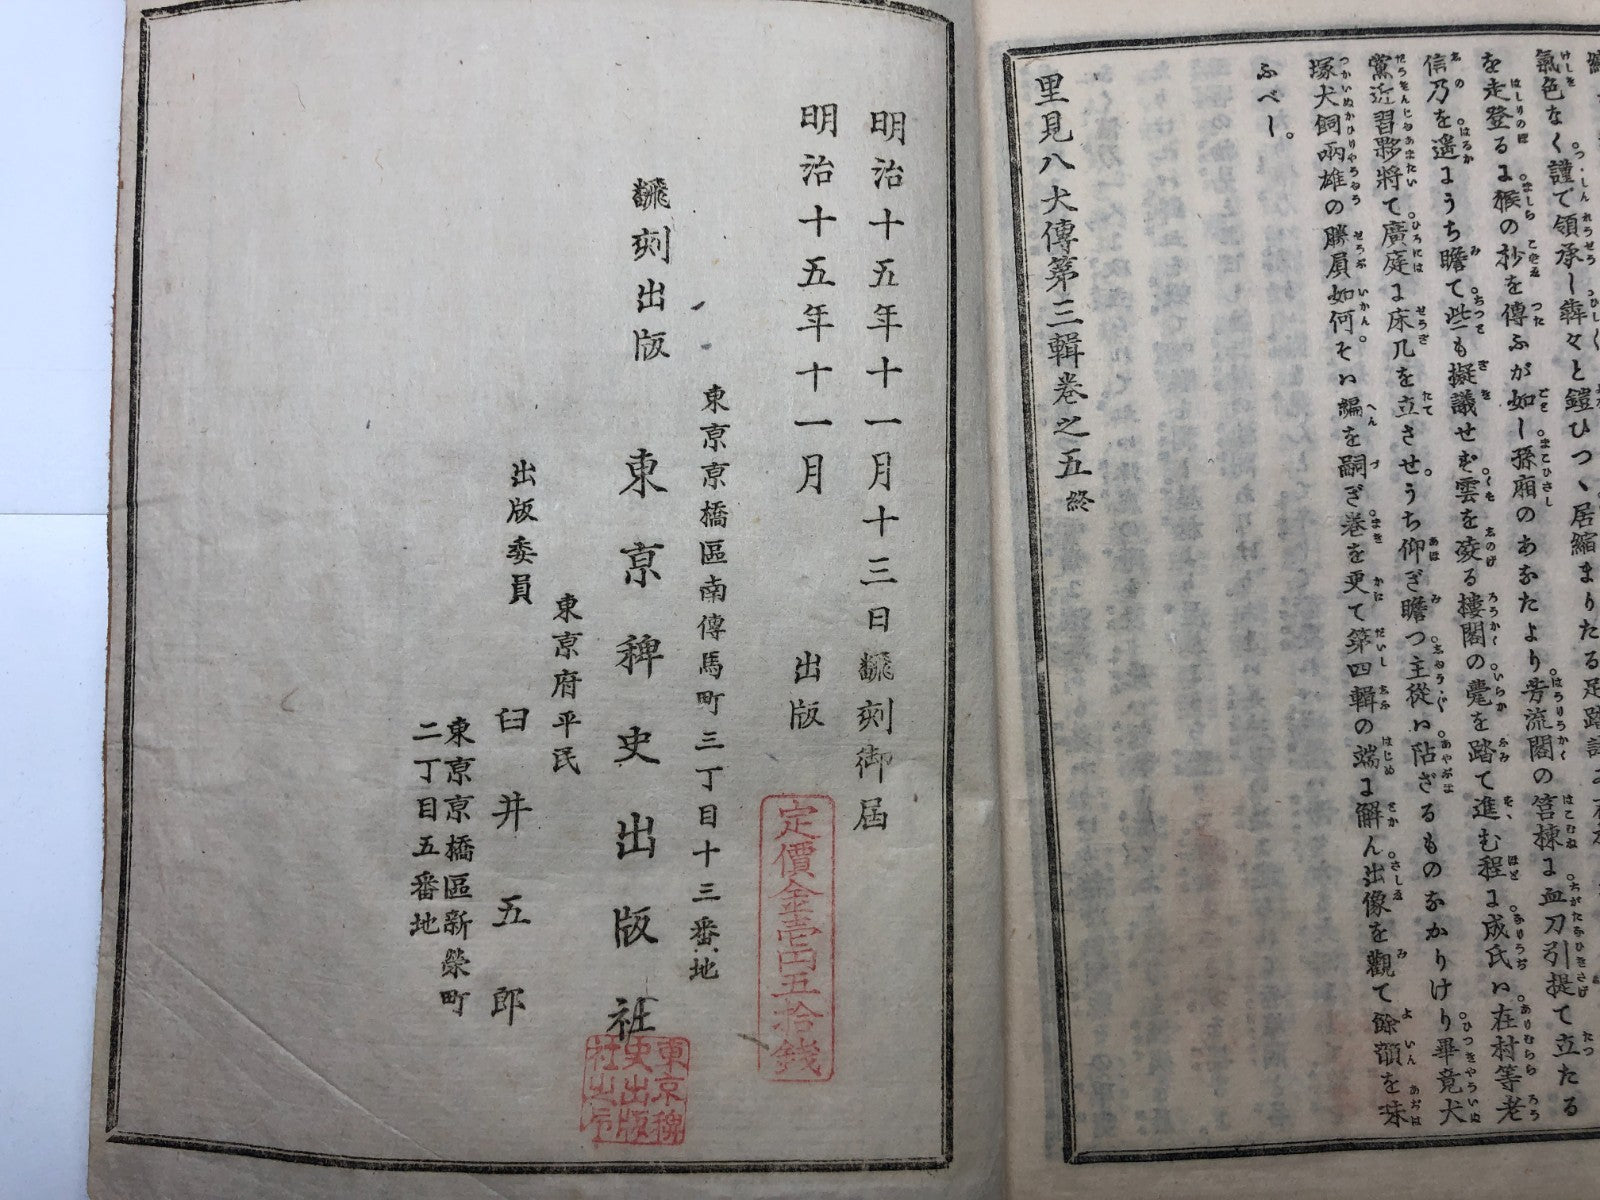 氣色なく謹で領承し犇々と鎧ひつゝ居縮まりたる足踏
を走登るよ猴の杪を傳ふが如し孫廂のあなたより芳流閣の筥棟よ血刀引提て立たる
信乃を遙ようち瞻て些も擬議せず雲を凌る樓閣の甍を踏て進む程よ成氏い在村等老
黨近習夥將て廣庭よ床几を立させ。うち仰ぎ瞻つ主從い阽ざるものなかりけり畢竟犬
塚犬飼兩雄の勝負如何。そい編を嗣ぎ巻を更て第四輯の端よ解ん出像を觀て餘韻を味
ふべし。
里見八犬傳第三輯卷之五終
明治十五年十一月十三日飜刻御届
明治十五年十一月 出版
定價金壱円五拾錢
東京京橋區南傳馬町三丁目十三番地
飜刻出版 東京稗史出版社
東京稗史出版社之印
東京府平民
出版委員 臼井五郎
東京京橋區新榮町
二丁目五番地